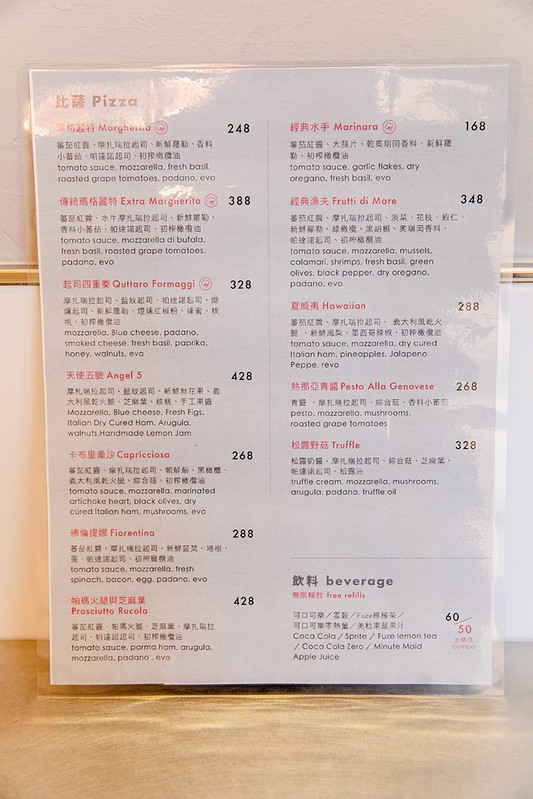 比薩 Pizza
瑪格麗特 Margherita 248
蕃茄紅醬、摩扎瑞拉起司、新鮮羅勒、香料
小蕃茄、帕達諾起司、初榨橄欖油
tomato sauce, mozzarella, fresh basil,
roasted grape tomatoes, padano, evo
傳統瑪格麗特 Extra Margherita 388
蕃茄紅醬、水牛摩扎瑞拉起司、新鮮羅勒、
香料小蕃茄、帕達諾起司、初榨橄欖油
tomato sauce, mozzarella di bufala,
fresh basil, roasted grape tomatoes,
padano, evo
起司四重奏 Quttaro Formaggi 328
摩扎瑞拉起司、藍紋起司、帕達諾起司、煙
燻起司、新鮮羅勒、煙燻紅椒粉、蜂蜜、核
桃、初榨橄欖油
mozzarella, Blue cheese, padano,
smoked cheese, fresh basil, paprika,
honey, walnuts, evo
天使五號 Angel 5 428
摩札瑞拉起司、藍紋起司、新鮮無花果、義
大利風乾火腿、芝麻葉、核桃、手工果醬
Mozzarella, Blue cheese, Fresh Figs,
Italian Dry Cured Ham, Arugula,
walnuts,Handmade Lemon Jam
卡布里喬沙 Capricciosa 268
蕃茄紅醬、摩扎瑞拉起司、朝鮮薊、黑橄欖、
義大利風乾火腿、綜合菇、初榨橄欖油
tomato sauce, mozzarella, marinated
artichoke heart, black olives, dry
cured Italian ham, mushrooms, evo
佛倫提娜 Fiorentina 288
蕃茄紅醬、摩扎瑞拉起司、新鮮菠菜、培根、
蛋、帕達諾起司、初榨橄欖油
tomato sauce, mozzarella, fresh
spinach, bacon, egg, padano, evo
帕瑪火腿與芝麻葉 428
Prosciutto Rucola
蕃茄紅醬、帕瑪火腿、芝麻葉、摩扎瑞拉
起司、帕達諾起司、初榨橄欖油
tomato sauce, parma ham, arugula,
mozzarella, padano , evo
經典水手 Marinara 168
蕃茄紅醬、大蒜片、乾奧瑞岡香料、新鮮羅
勒、初榨橄欖油
tomato sauce, garlic flakes, dry
oregano, fresh basil, evo
經典漁夫 Frutti di Mare 348
蕃茄紅醬、摩扎瑞拉起司、淡菜、花枝、蝦仁、
新鮮羅勒、綠橄欖、黑胡椒、奧瑞岡香料、
帕達諾起司、初榨橄欖油
tomato sauce, mozzarella, mussels,
calamari, shrimps, fresh basil, green
olives, black pepper, dry oregano,
padano, evo
夏威夷 Hawaiian 288
蕃茄紅醬、摩扎瑞拉起司、 義大利風乾火
腿 、新鮮鳳梨、墨西哥辣椒、初榨橄欖油
tomato sauce, mozzarella, dry cured
Italian ham, pineapples, Jalapeno
Peppe, revo
熱那亞青醬 Pesto Alla Genovese 268
青醬 、摩扎瑞拉起司、綜合菇、香料小蕃茄
pesto, mozzarella, mushrooms,
roasted grape tomatoes
松露野菇 Truffle 328
松露奶醬、摩扎瑞拉起司、綜合菇、芝麻葉、
帕達諾起司、松露油
truffle cream, mozzarella, mushrooms,
arugula, padano, truffle oil
飲料 beverage
無限暢飲 free refills
可口可樂／雪碧／Fuze檸檬茶／ 60/
可口可樂零熱量／美粒果蘋果汁 50
Coca Cola / Sprite / Fuze lemon tea
/ Coca Cola Zero / Minute Maid combo
Apple Juice